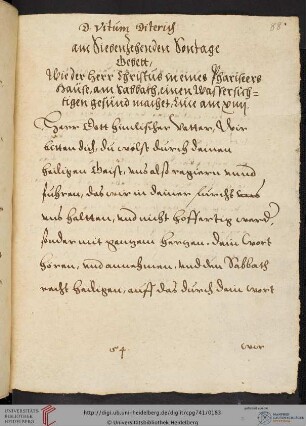 D. Vitum Diterich
88
am Siebenzehenden Sontage
Gebett,
Wie der Herr Christus in eines Phariseers
Hause, am Sabbath, einen Wassersich-
tigen gesund machet, Luce am xiiij
Herr Gott himlischer Vatter, Wir
bitten dich, du wölst durch deinen
heiligen Geist, uns also regiern unnd
führen, das wir in deiner furcht
uns haltten, und nicht hoffertig werd,
sonder mit gantzem hertzen, dein wort
hören, und annehmen, und den Sabbath
recht heiligen, auff das durch dein wort
wir
UNIVERSITÄTS-
BIBLIOTHEK
HEIDELBERG
http://digi.ub.uni-heidelberg.de/diglit/cpg741/0183
© Universitätsbibliothek Heidelberg